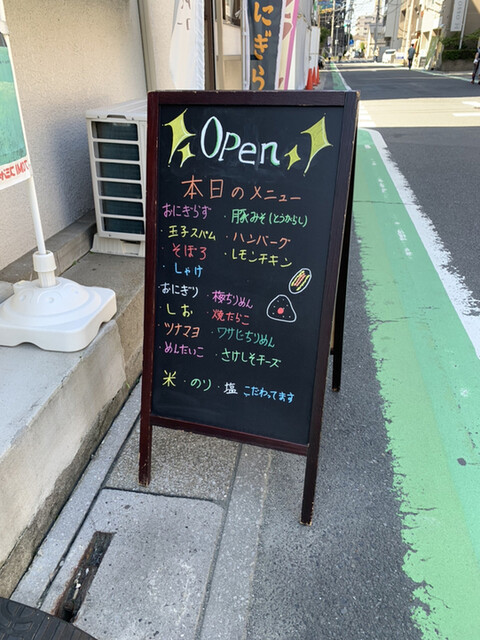 にぎら
Open
本日のメニュー
おにぎらず ・豚みそ(とうがらし)
・玉子スパム ・ハンバーグ
・そぼろ ・レモンチキン
・しゃけ
おにぎり ・梅ちりめん
・しお ・焼たらこ
・ツナマヨ ・ワサビちりめん
・めんたいこ ・さけしそチーズ
米・のり・塩 こだわってます